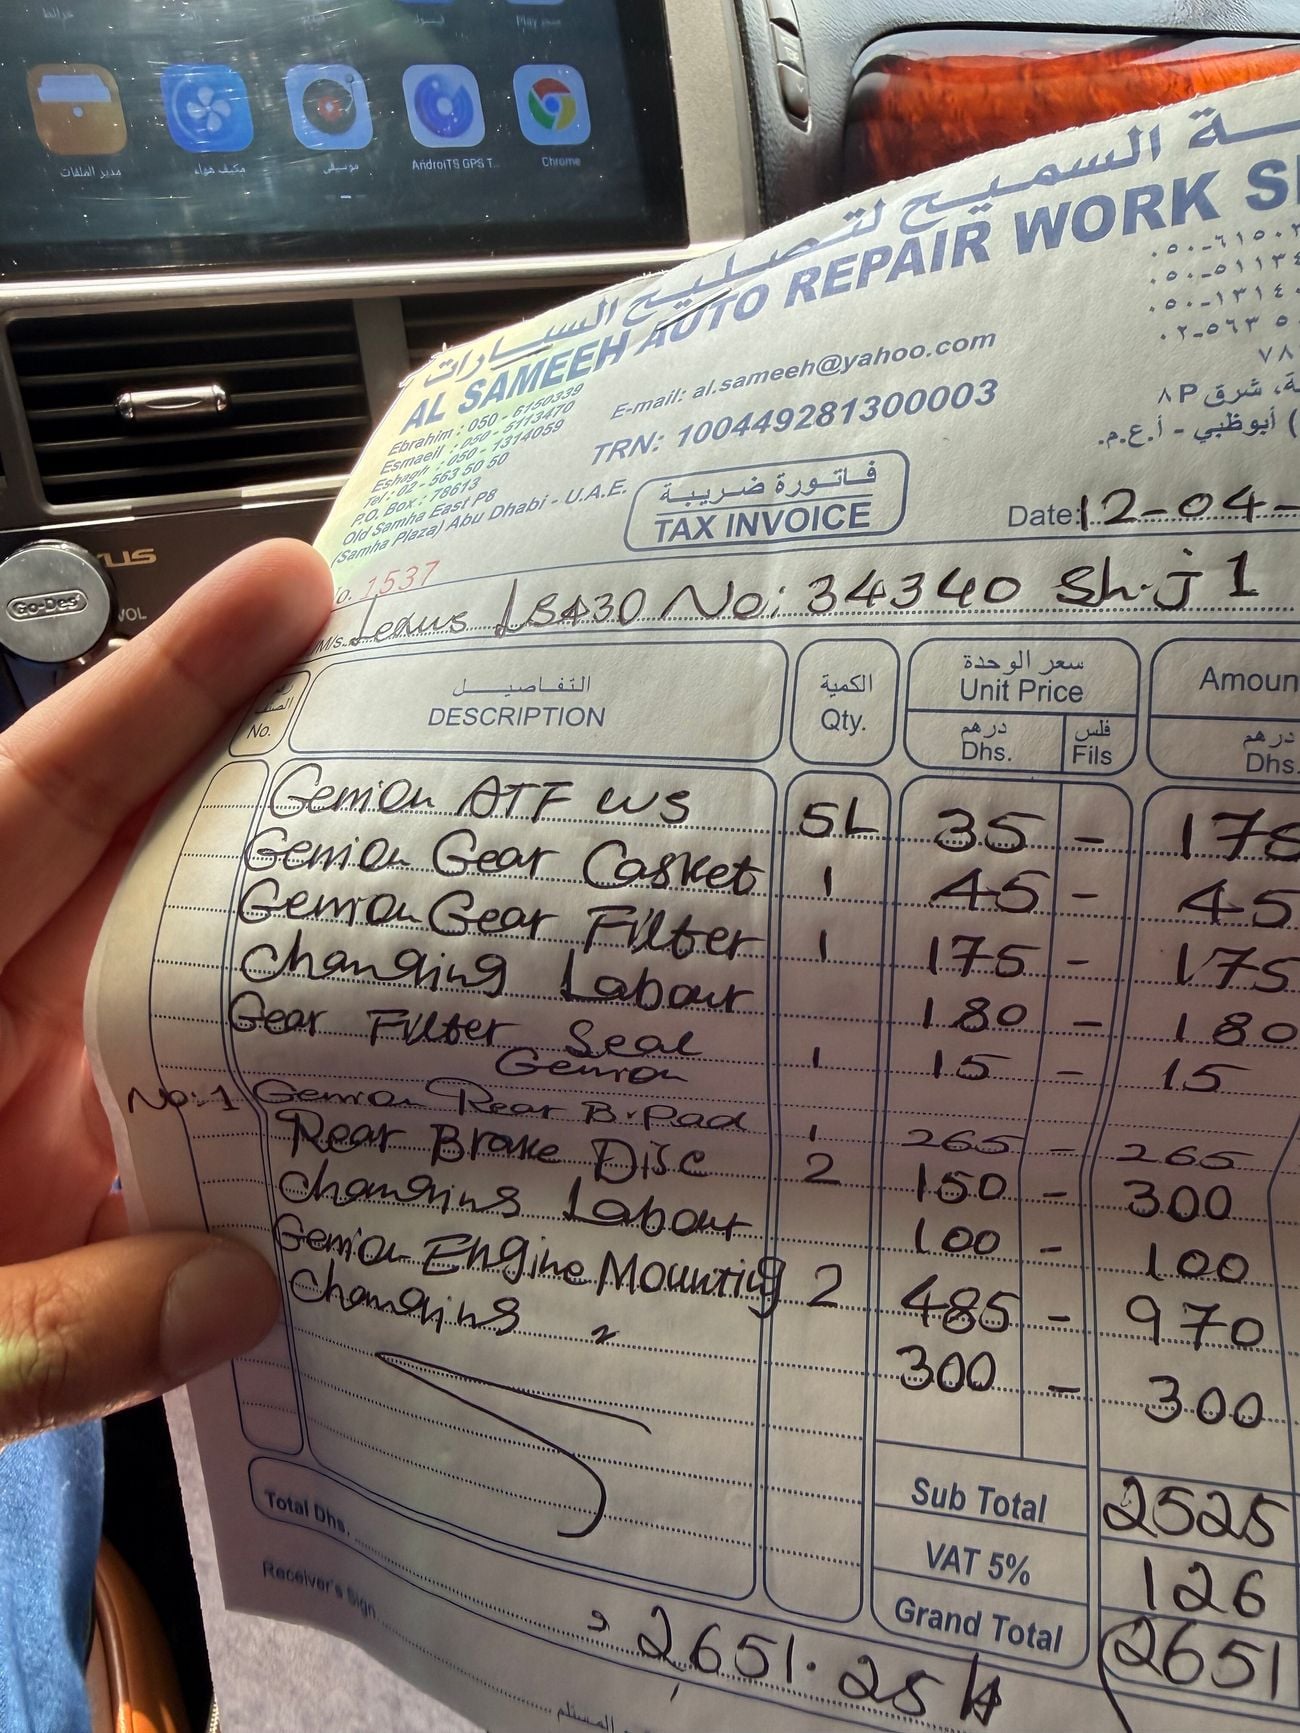 مدير الملفات
مكيف هواء
موسيقى
AndroiTS GPS T...
Chrome
ة السميح لتصليح السيارات
AL SAMEEH AUTO REPAIR WORK S
Ebrahim : 050 - 6150339
Esmaeil : 050 - 5113470
Eshagh : 050 - 1314059
Tel : 02 - 563 50 50
P.O. Box : 78613
Old Samha East P8
(Samha Plaza) Abu Dhabi - U.A.E.
E-mail: al.sameeh@yahoo.com
TRN: 100449281300003
٠٥٠-٦١٥٠٣
٠٥٠-٥١١٣٤
٠٥٠-١٣١٤٠
٠٢-٥٦٣ ٥
٧٨
شرق ٨P
) أبوظبي - أ.ع.م.
فاتورة ضريبة
TAX INVOICE
Date: 12-04-
No. 1537
M/s. Lexus LS430 No: 34340 Sh.j 1
رقم الصنف No.
التفاصيل DESCRIPTION
الكمية Qty.
سعر الوحدة Unit Price
درهم Dhs.
فلس Fils
Amoun
درهم Dhs.
Genion ATF WS 5L 35 - 175
Genion Gear Casket 1 45 - 45
Genion Gear Filter 1 175 - 175
Changing Labour 180 - 180
Gear Filter Seal Genion 1 15 - 15
No:1 Genion Rear B.Pad 1 265 - 265
Rear Brake Disc 2 150 - 300
Changing Labour 100 - 100
Genion Engine Mounting 2 485 - 970
Changing " 300 - 300
Sub Total 2525
VAT 5% 126
Grand Total 2651
Total Dhs. 2651.25
Receiver's Sign
المستلم
LEXUS
VOL